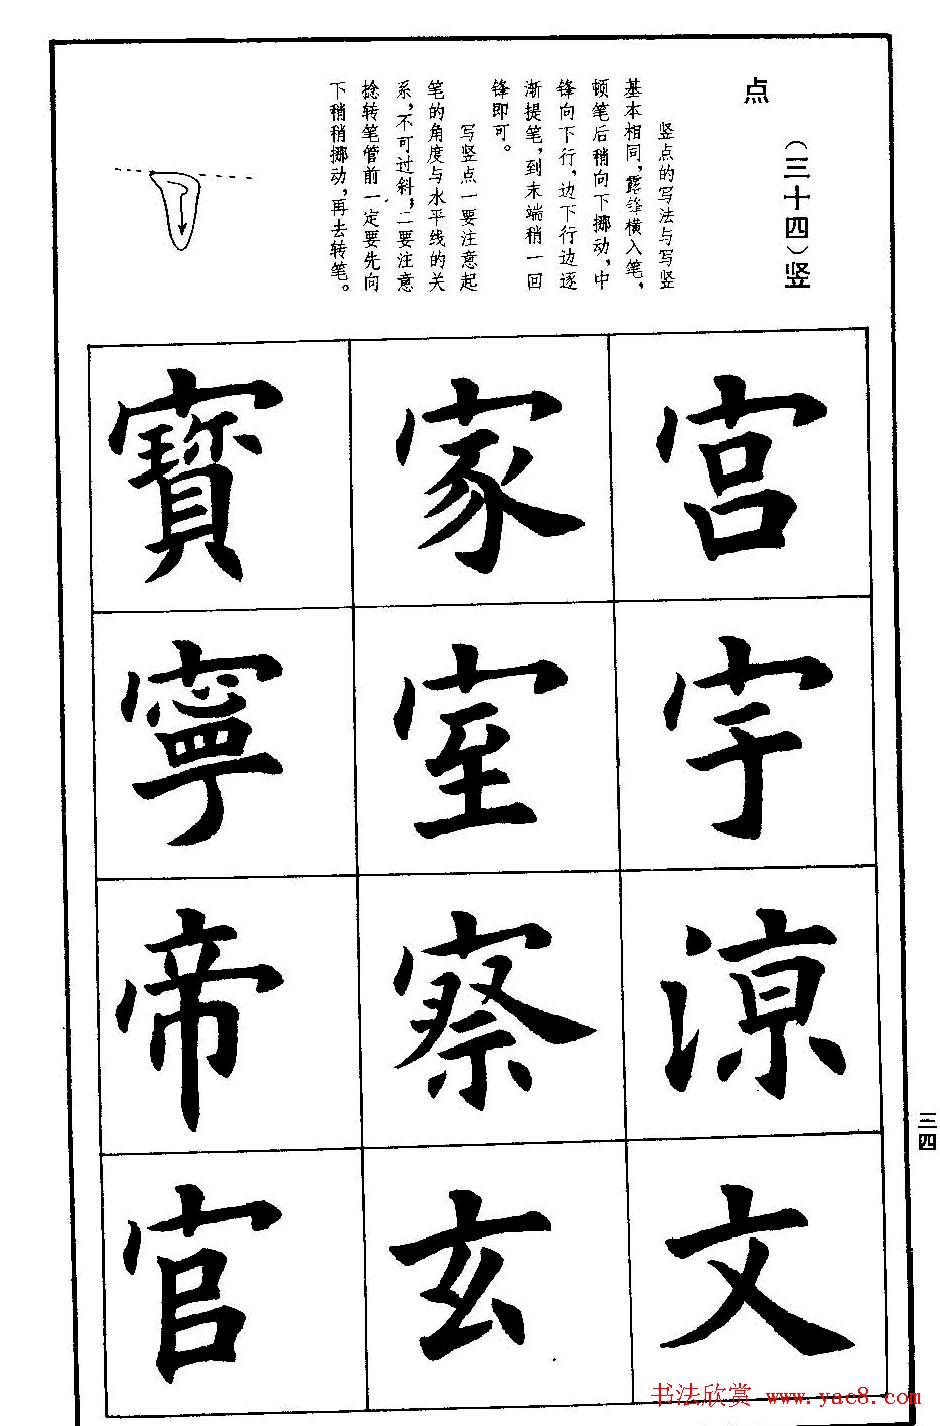 (三十四)竖
点
竖点的写法与写竖
基本相同,露锋横入笔,
顿笔后稍向下挪动,中
锋向下行,边下行边逐
渐提笔,到末端稍一回
锋即可。
写竖点一要注意起
笔的角度与水平线的关
系,不可过斜;二要注意
捻转笔管前一定要先向
下稍稍挪动,再去转笔。
宫
宇
凉
文
家
室
察
玄
寳
寧
帝
官
三四
书法欣赏 www.yac8.com